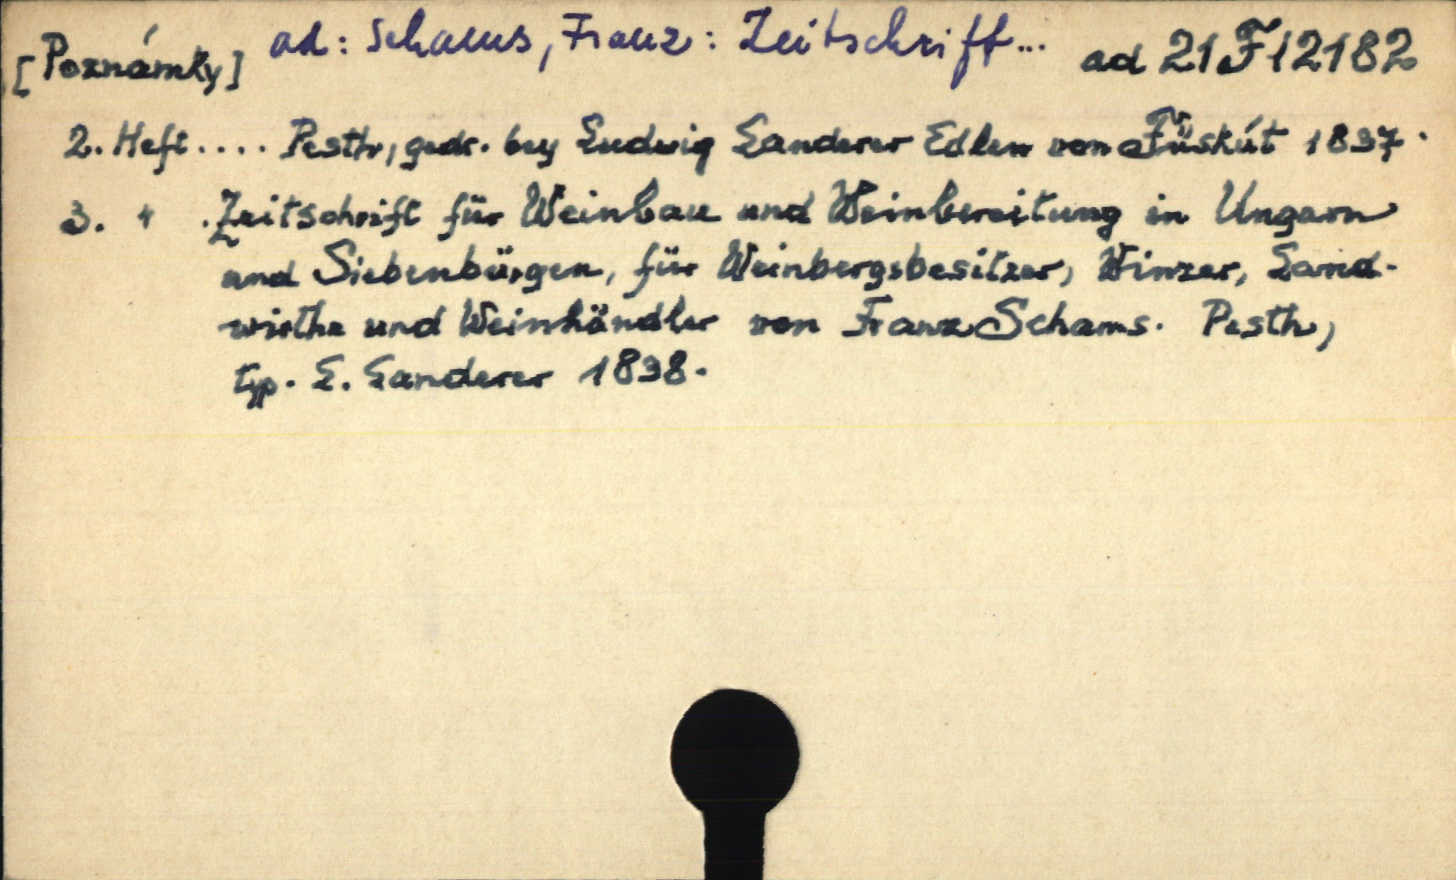 [Poznámky] ad: Schams, Franz: Zeitschrift... ad 21 F 12182
2. Heft .... Pesth, gedr. bey Ludwig Landerer Edlen von Füskút 1837.
3. " . Zeitschrift für Weinbau und Weinbereitung in Ungarn
und Siebenbürgen, für Weinbergsbesitzer, Winzer, Land-
wirthe und Weinhändler von Franz Schams. Pesth,
typ. L. Landerer 1838.